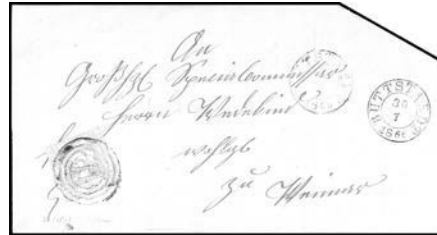 An
Großhzl Specialcommissar
Herrn Wedekind
wohlgb
zu Weimar
BUTTSTÆDT
30
7